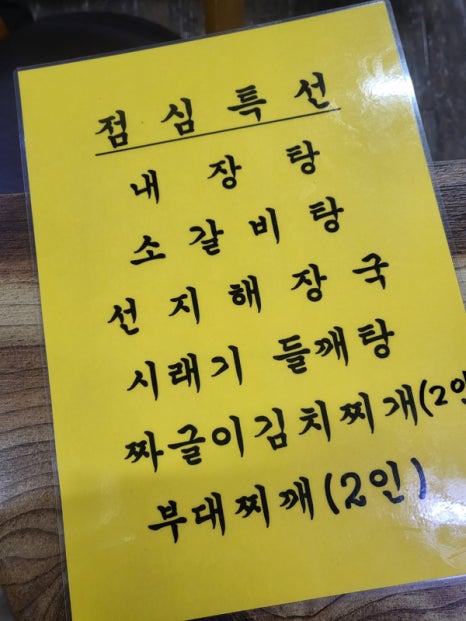 점심특선
내장탕
소갈비탕
선지해장국
시래기 들깨탕
짜글이김치찌개(2인
부대찌깨(2인)